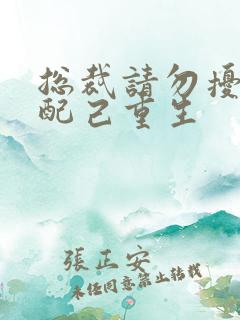 总裁請勿擾
配已重生
張正安
未經同意禁止转載